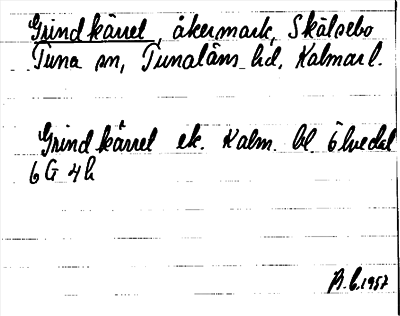 Grindkärret, åkermark, Skälsebo
Tuna sn, Tunaläns hd, Kalmar l.
Grindkärret ek. Kalm. bl. Ölvedal
6 G 4h
1957